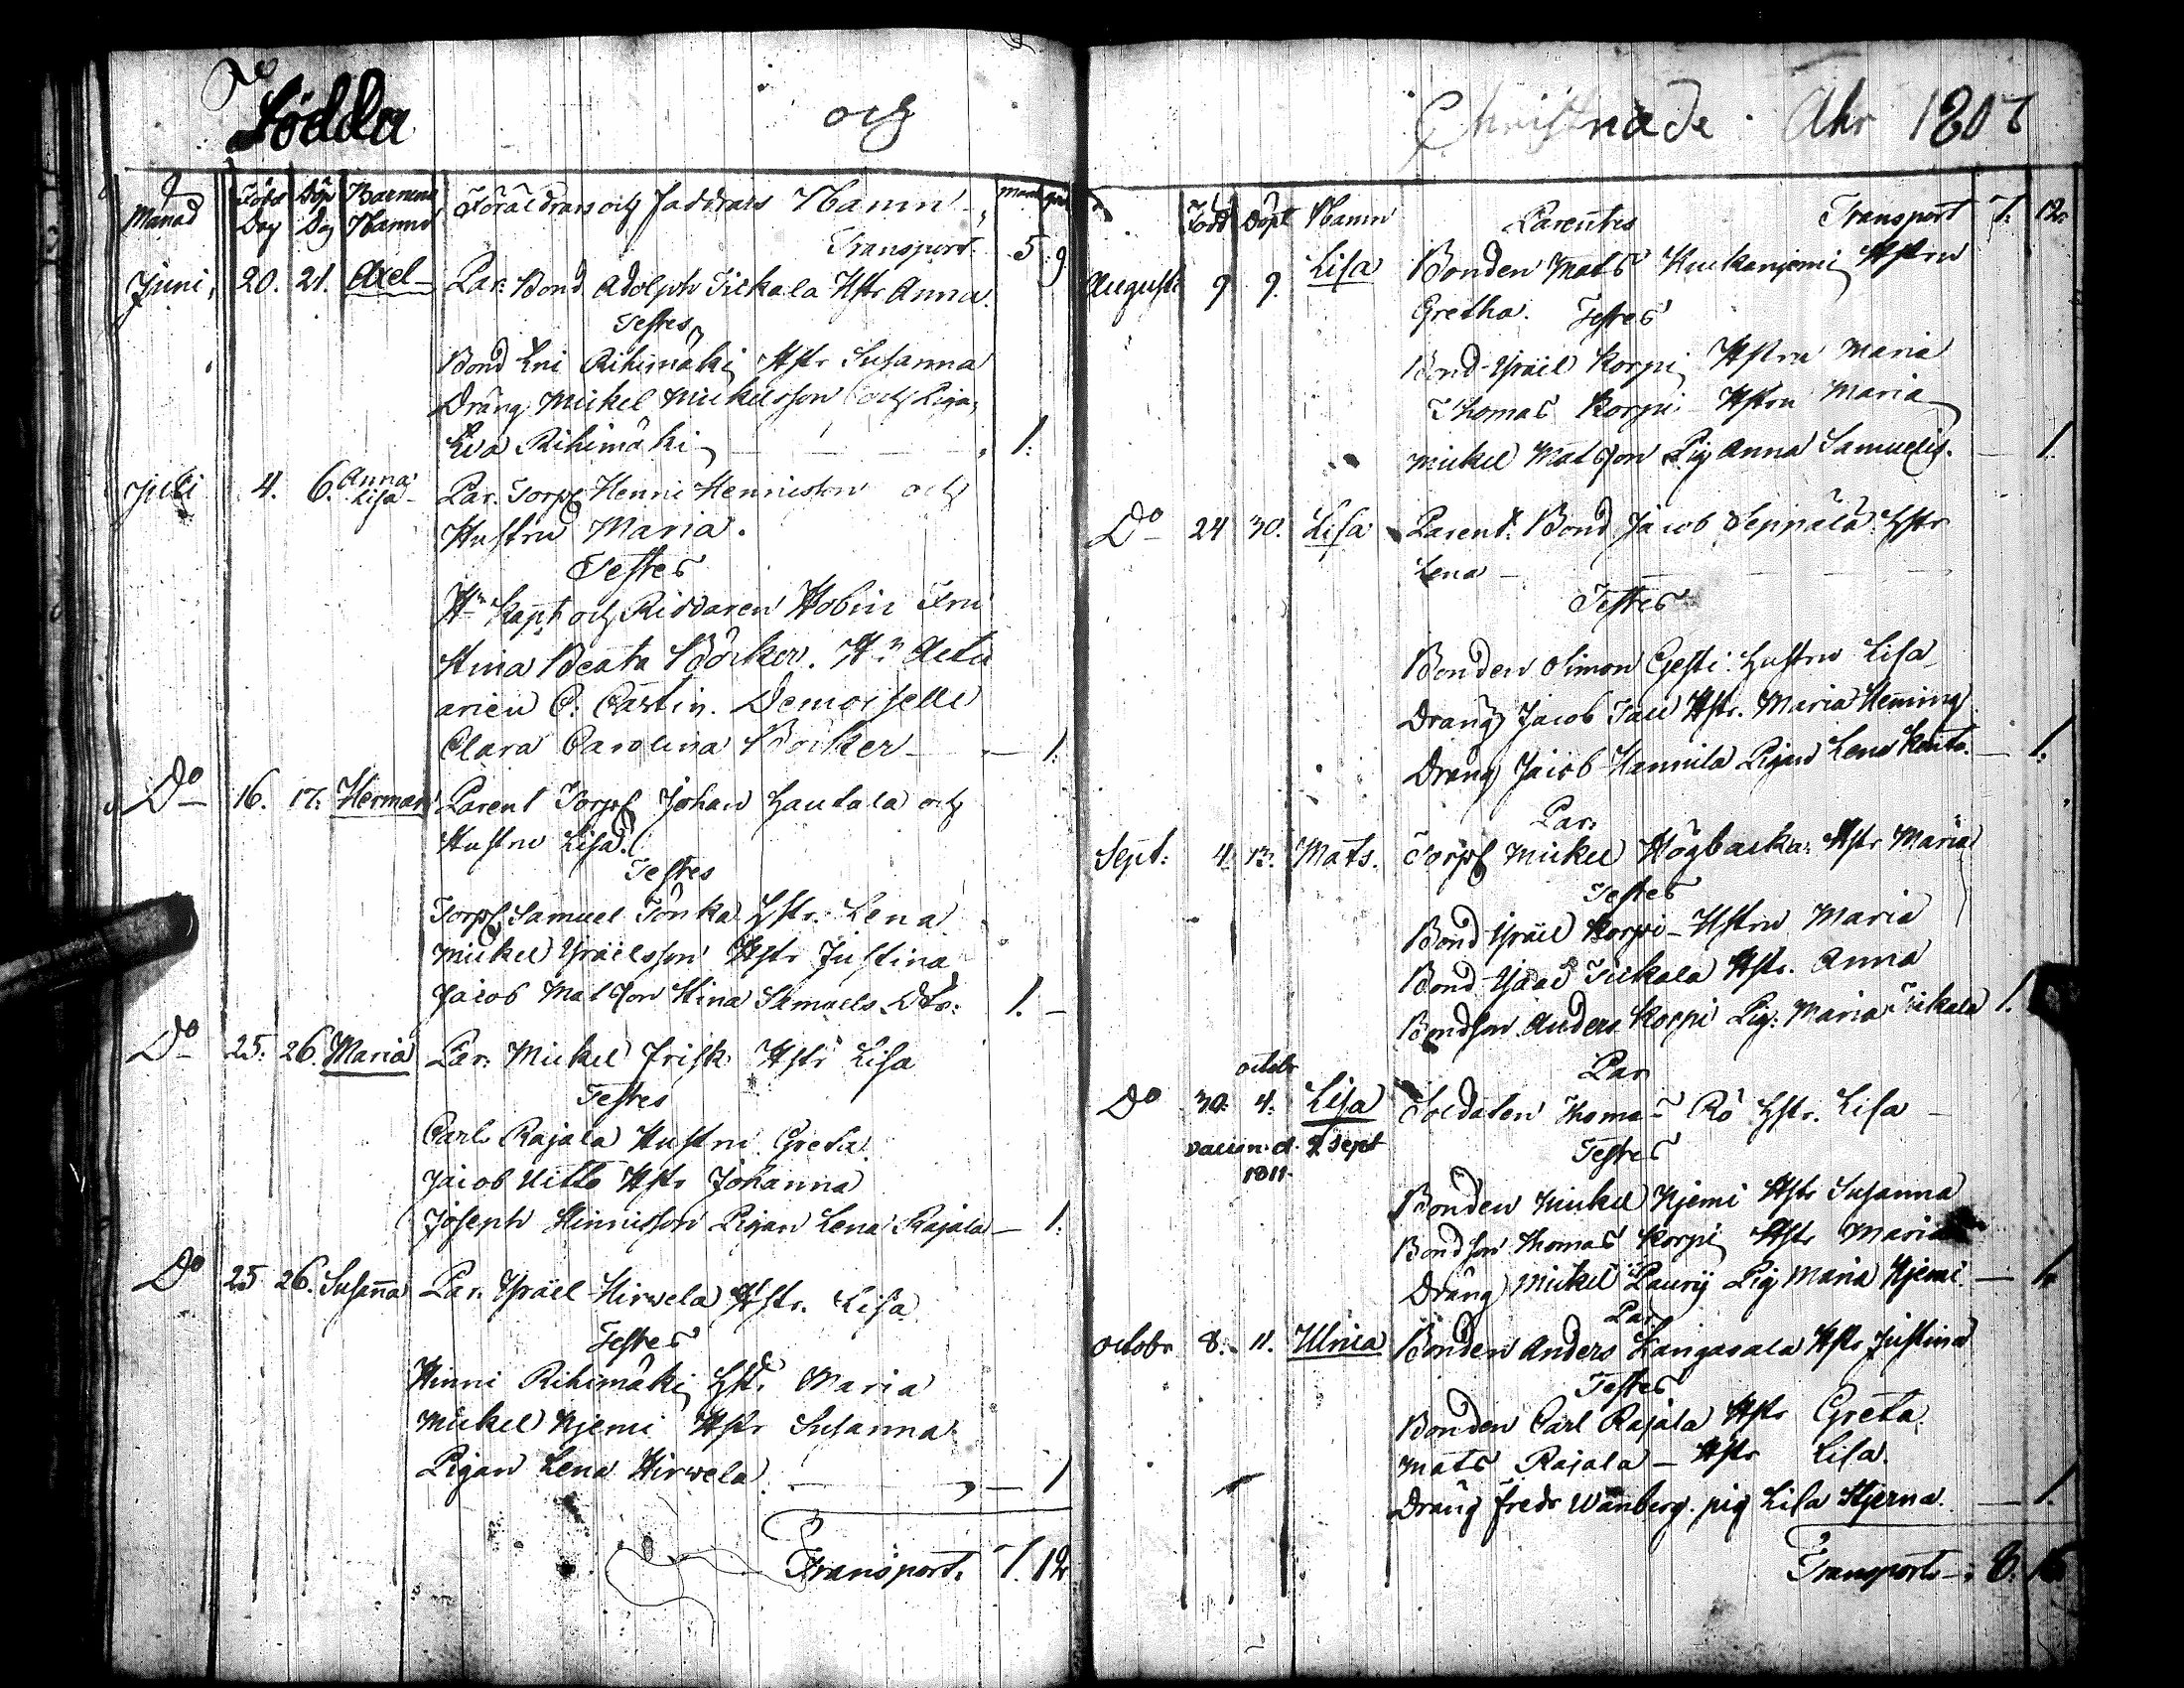 Födda och
Månad Född Dag Döp Dag Barnens Namn Föräldrars och Faddrars Namn
Transport. 5 9
Juni, 20. 21. Axel Par: Bond Adolph Tickala Hstr Anna.
Testes
Bond Eric Rihimäki Hstr Susanna
Dräng Mickel Mickelsson och Piga
Eva Rihimäki 1:
Juli 4. 6. Anna Lisa Par. Torp Henric Hennisson och
Hustru Maria.
Testes
Hr Kapt och Riddaren Hobin Fru
Stina Beata Böcker. Hr Actu
arien C. Castin. Demoiselle
Clara Carolina Böcker 1:
Do 16. 17. Herman Parent Torp Johan Hautala och
Hustru Lisa.
Testes
Torp Samuel Tönka Hstr. Lena
Mickel Yrjäelsson Hstr Justina
Jacob Matsson Stina Samuels Dtr: 1.
Do 25. 26. Maria Par: Mickel Frisk Hstr Lisa
Testes
Carl Rajala Hustru Greta.
Jacob Uitto Hstr Johanna
Joseph Hinnisson Pigan Lena Rajala 1:
Do 25 26. Susanna Par. Ysräel Hirwela Hstr. Lisa
Testes
Hinni Rihimäki Hstr. Maria
Mickel Njemi Hstr Susanna
Pigan Lena Hirwela 1
Transport. 7. 12
Christnade. Åhr 1807
Född Döpt Namn Parentes Transport 7. 12.
Augusti 9 9. Lisa Bonden Mats Kuckanjemi Hstru
Gretha. Testes
Bond Ysräel Korpi Hstru Maria
Thomas Korpi Hstru Maria
Mickel Matsson Pig Anna Samuelis. 1
Do 24 30. Lisa Parent: Bond Jacob Seppälä Hstr
Lena
Testes
Bonden Simon Gesti Hustru Lisa
Dräng Jacob Hstr. Maria Heming
Dräng Jacob Hannila Pigan Lena 1.
Par:
Sept: 4. 13. Mats. Torp Mickel Högbacka: Hstr Maria
Testes
Bond Ysräel Korpi Hstru Maria
Bond Ysaac Tickala Hstr. Anna
Bondson Anders Korpi Pig: Maria Tickala 1.
octobr Par
Do 30. 4. Lisa Soldaten Thomas Rö Hstr. Lisa
vaccin. d. 2 Sept Testes
1811.
Bonden Mickel Njemi Hstr Susanna
Bondson Thomas Korpi Hstr Maria
Dräng Mickel Laurij Pig Maria Njemi 1
Par
octobr 8. 11. Ulrica Bonden Anders Kangasala Hstr Justina
Testes
Bonden Carl Rajala Hstr Greta.
Mats Rajala Hstr Lisa.
Dräng Fredr Wänberg. pig Lisa Stjerna. 1.
Transport 8.